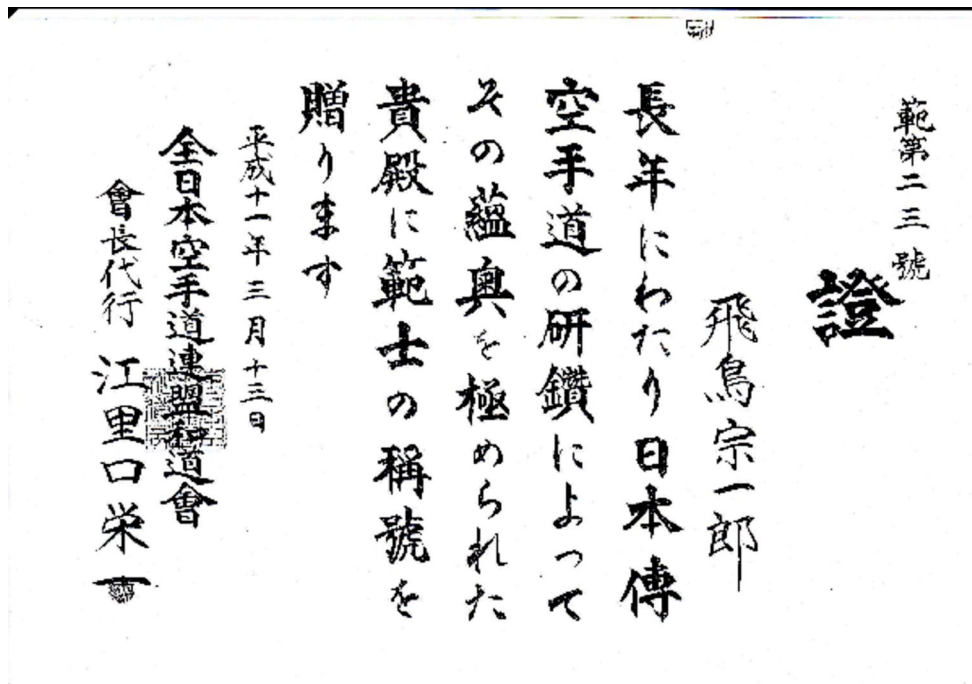 範第二三號
證
飛鳥宗一郎
長年にわたり日本傳
空手道の研鑽によって
その蘊奥を極められた
貴殿に範士の稱號を
贈ります
平成十一年三月十三日
全日本空手道連盟和道會
會長代行 江里口栄一